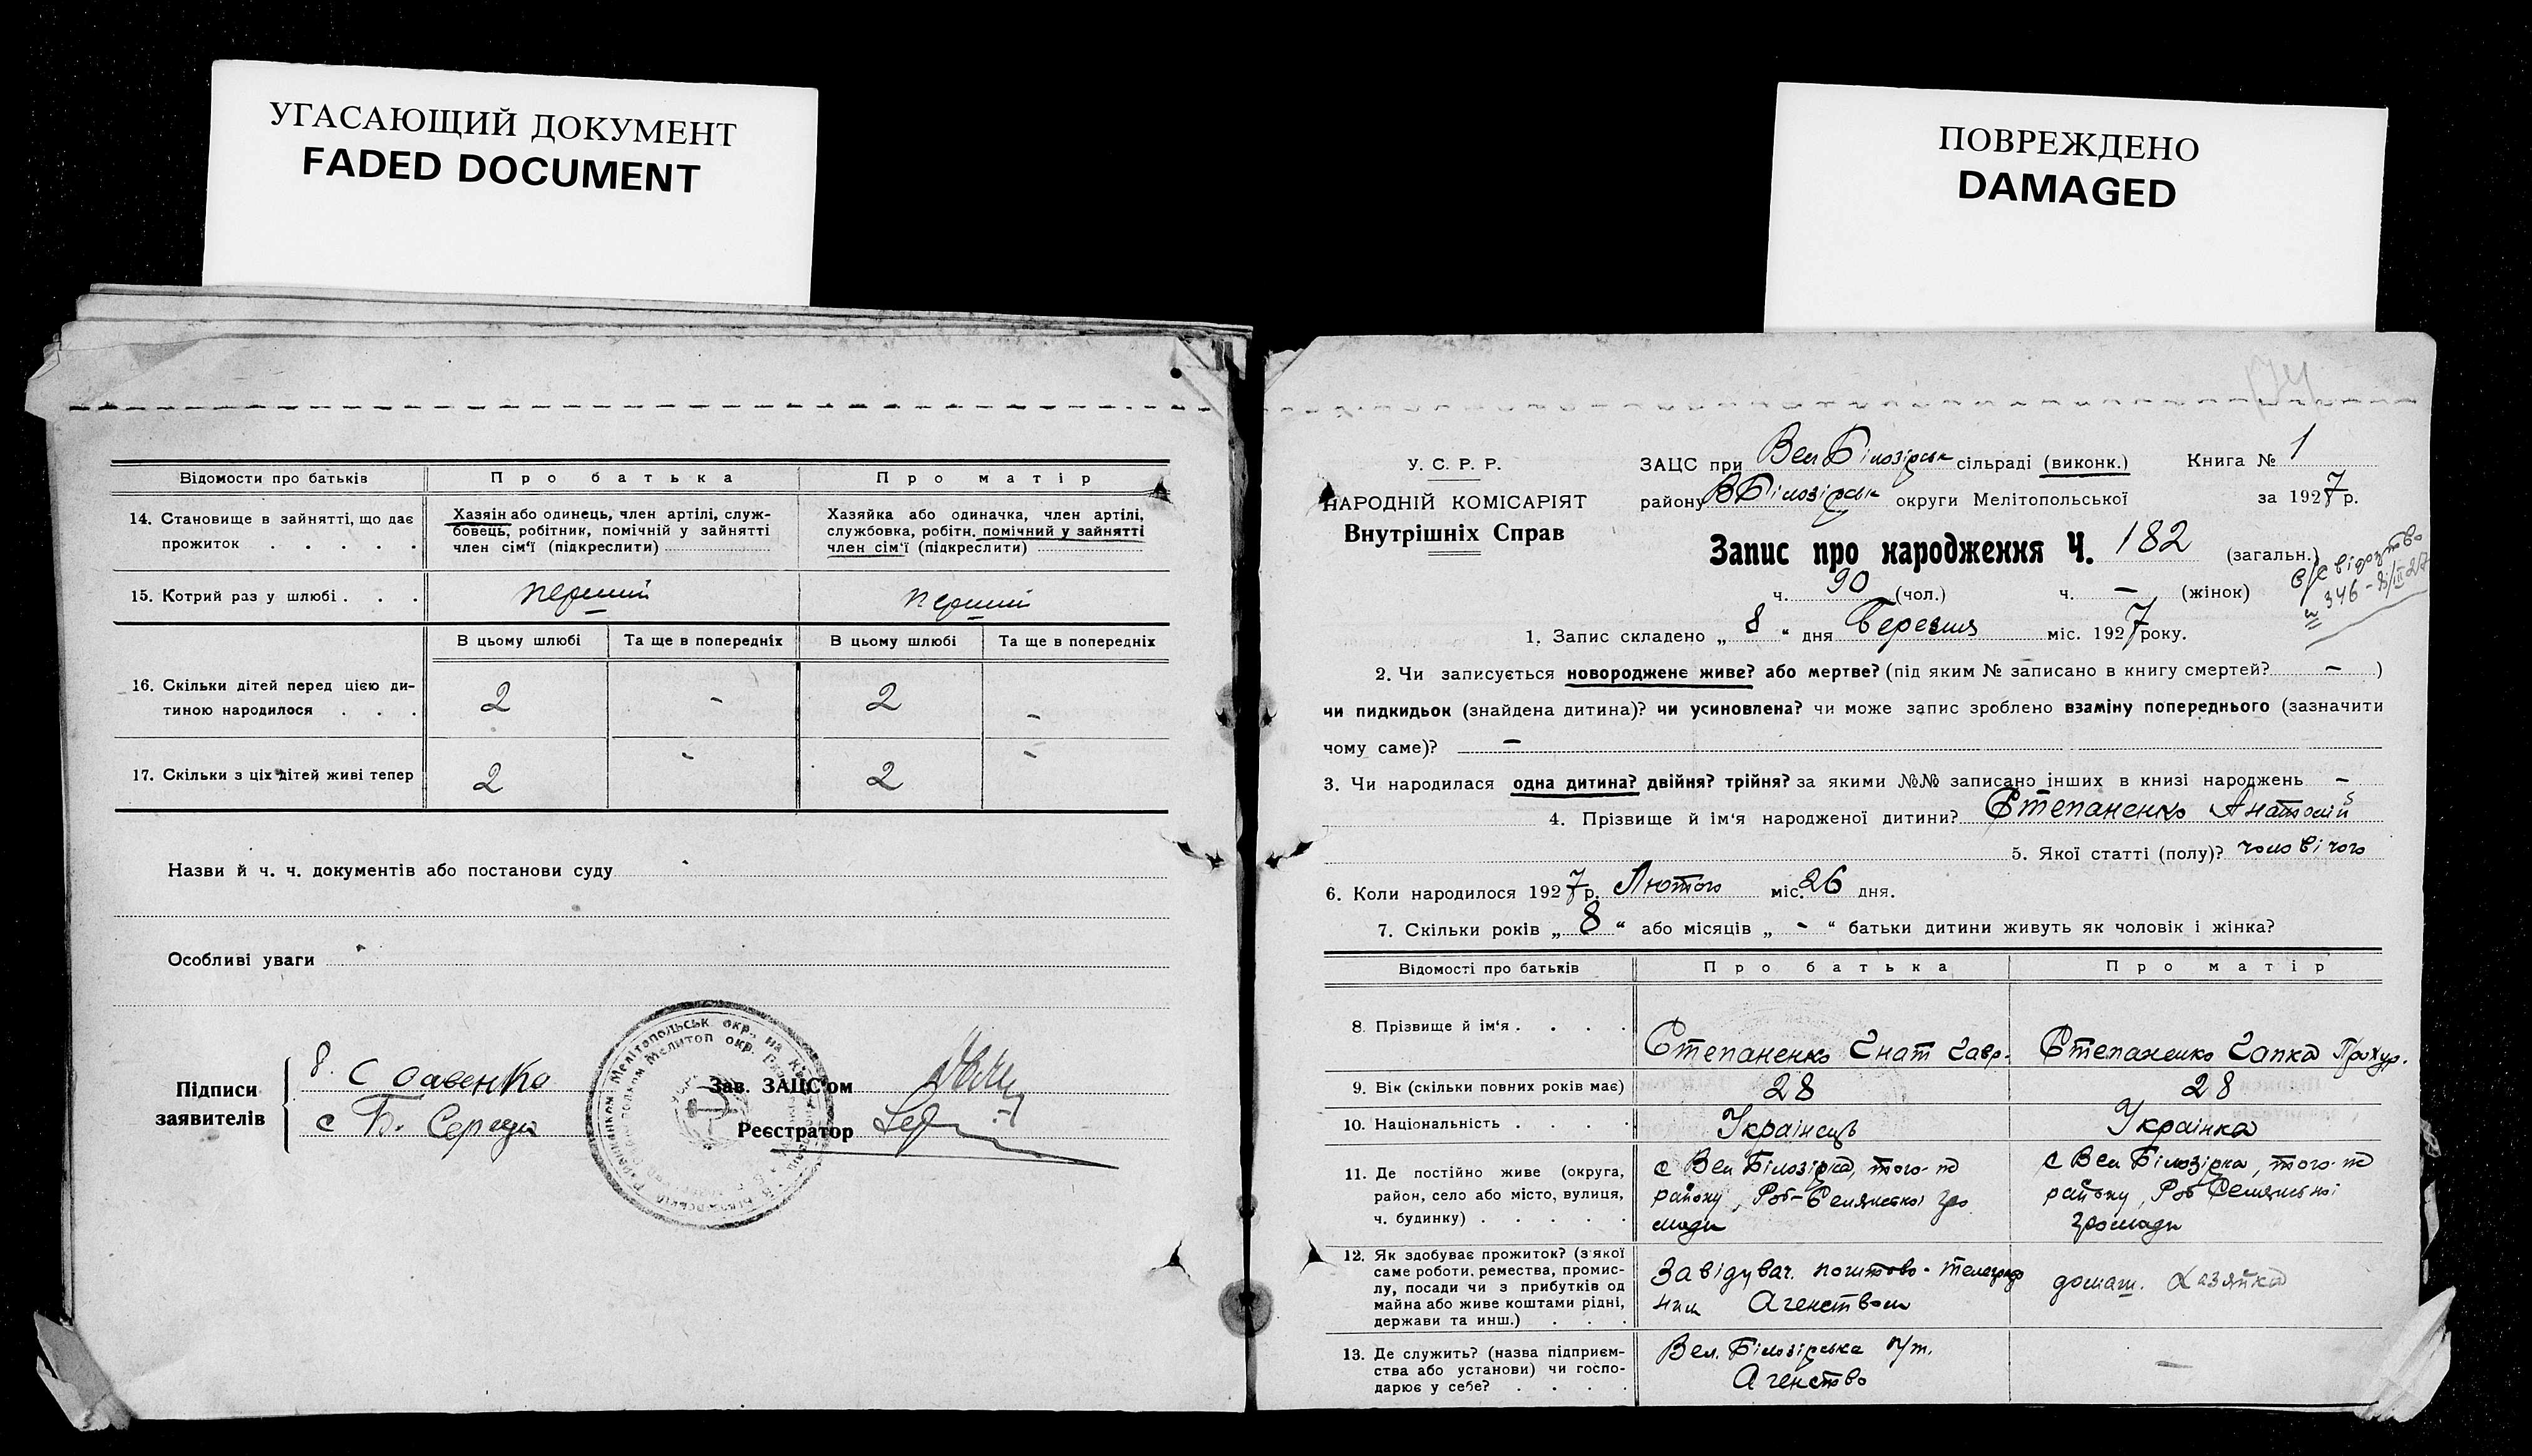 УГАСАЮЩИЙ ДОКУМЕНТ
FADED DOCUMENT
ПОВРЕЖДЕНО
DAMAGED
Відомости про батьків Про батька Про матір
14. Становище в зайнятті, що дає прожиток . . . . .
Хазяїн або одинець, член артілі, служ-
бовець, робітник, помічній у зайнятті
член сім'ї (підкреслити)
Хазяйка або одиначка, член артілі,
службовка, робітн. помічний у зайнятті
член сім'ї (підкреслити)
15. Котрий раз у шлюбі . . . перший перший
В цьому шлюбі Та ще в попередніх В цьому шлюбі Та ще в попередніх
16. Скільки дітей перед цією ди-
тиною народилося . . . 2 - 2 -
17. Скільки з ціх дітей живі тепер 2 - 2 -
Назви й ч. ч. документів або постанови суду
Особливі уваги
Підписи
заявителів
Зав. ЗАЦС'ом
Реєстратор
174
У. С. Р. Р.
НАРОДНІЙ КОМІСАРІЯТ
Внутрішніх Справ
ЗАЦС при Вел Білозірськ сільраді (виконк.) Книга № 1
району ВБілозірськ округи Мелітопольської за 1927 р.
Запис про народження Ч. 182 (загальн.)
ч. 90 (чол.) ч. — (жінок)
1. Запис складено „ 8 “ дня Березня міс. 1927 року.
2. Чи записується новороджене живе? або мертве? (під яким № записано в книгу смертей? — )
чи пидкидьок (знайдена дитина)? чи усиновлена? чи може запис зроблено взаміну попереднього (зазначити
чому саме)? —
3. Чи народилася одна дитина? двійня? трійня? за якими №№ записано інших в книзі народжень —
4. Прізвище й ім'я народженої дитини? Степаненко Анатолій
5. Якої статті (полу)? чоловічого
6. Коли народилося 1927 р. Лютого міс. 26 дня.
7. Скільки років „ 8 “ або місяців „ - “ батьки дитини живуть як чоловік і жінка?
Відомості про батьків Про батька Про матір
8. Прізвище й ім'я . . . . Степаненко Гнат Гавр. Степаненко Гапка Прохор.
9. Вік (скільки повних років має) 28 28
10. Національність . . . . Українець Українка
11. Де постійно живе (округа,
район, село або місто, вулиця,
ч. будинку) . . . . .
с Вел Білозірка, того-по
району, Роб-Селянської гро
мади
с Вел Білозірка, того-по
району, Роб Селянської
громади
12. Як здобуває прожиток? (з якої
саме роботи, ремества, промис-
лу, посади чи з прибутків од
майна або живе коштами рідні,
держави та инш.) . . .
Завідувач. поштово-телеграф
ним Агенством
домаш. Хазяйка
13. Де служить? (назва підприєм-
ства або установи) чи госпо-
дарює у себе? . . . .
Вел. Білозірська п/т.
Агенство
—